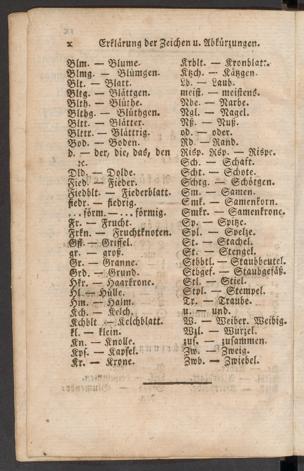 x Erklärung der Zeichen u. Abkürzungen.
Blm. — Blume.
Blmg. — Blümgen.
Blt. — Blatt.
Bltg. — Blättgen.
Blth. — Blüthe.
Blthg. — Blüthgen.
Bltt. — Blätter.
Blttr. — Blättrig.
Bod. — Boden.
d. — der, die, das, den
ꝛc.
Dld. — Dolde.
Fied. — Fieder.
Fiedblt. — Fiederblatt.
fiedr. — fiedrig.
. . . förm. — . . . förmig.
Fr. — Frucht.
Frkn. — Fruchtknoten.
Gff. — Griffel.
gr. — groß.
Gr. — Granne.
Grd. — Grund.
Hkr. — Haarkrone.
Hl. — Hülle.
Hm. — Halm.
Kch. — Kelch.
Kchblt — Kelchblatt.
kl. — klein.
Kn. — Knolle.
Kpf. — Kapfel.
Kr. — Krone.
Krblt. — Kronblatt.
Ktzch. — Kätzgen.
Lb. — Laub.
meist. — meistens.
Nbe. — Narbe.
Ngl. — Nagel.
Nß. — Nuß.
od. — oder.
Rd. — Rand.
Risp. Rsp. — Rispe.
Sch. — Schaft.
Scht. — Schote.
Schtg. — Schötgen.
Sm. — Samen.
Smk. — Samenkorn.
Smkr. — Samenkrone.
Sp. — Spitze.
Spl. — Spelze.
St. — Stachel.
St. — Stengel.
Stbbtl. — Staubbeutel.
Stbgef. — Staubgefäß.
Stl. — Stiel.
Stpl. — Stempel.
Tr. — Traube.
u. — und.
W. — Weiber. Weibig.
Wzl. — Wurzel.
zus. — zusammen.
Zw. — Zweig.
Zwb. — Zwiebel.